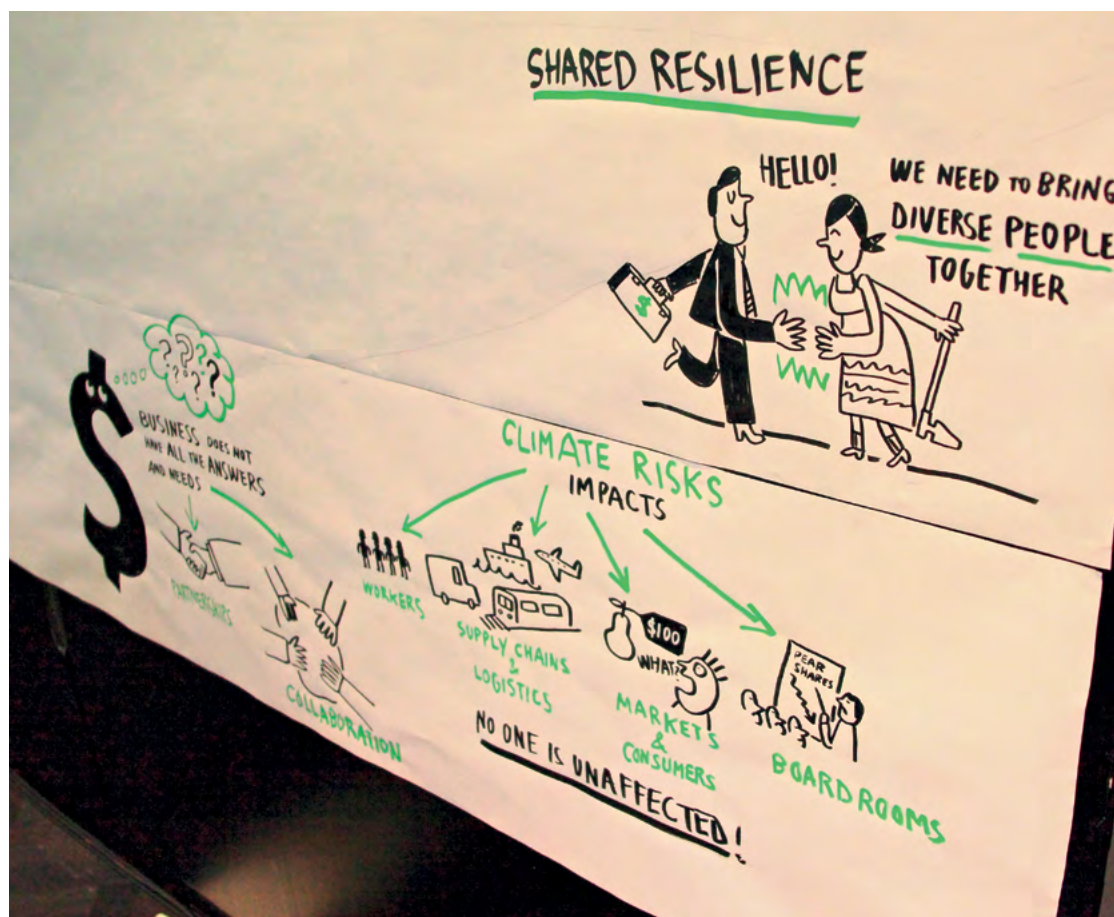 SHARED RESILIENCE
HELLO!
WE NEED TO BRING
DIVERSE PEOPLE
TOGETHER
$
? ? ? ? ? ? ?
$
BUSINESS DOES NOT
HAVE ALL THE ANSWERS
AND NEEDS
PARTNERSHIPS
COLLABORATION
CLIMATE RISKS
IMPACTS
WORKERS
SUPPLY CHAINS
&
LOGISTICS
$100
WHAT?
MARKETS
&
CONSUMERS
PEAR
SHARES
BOARDROOMS
NO ONE IS UNAFFECTED!